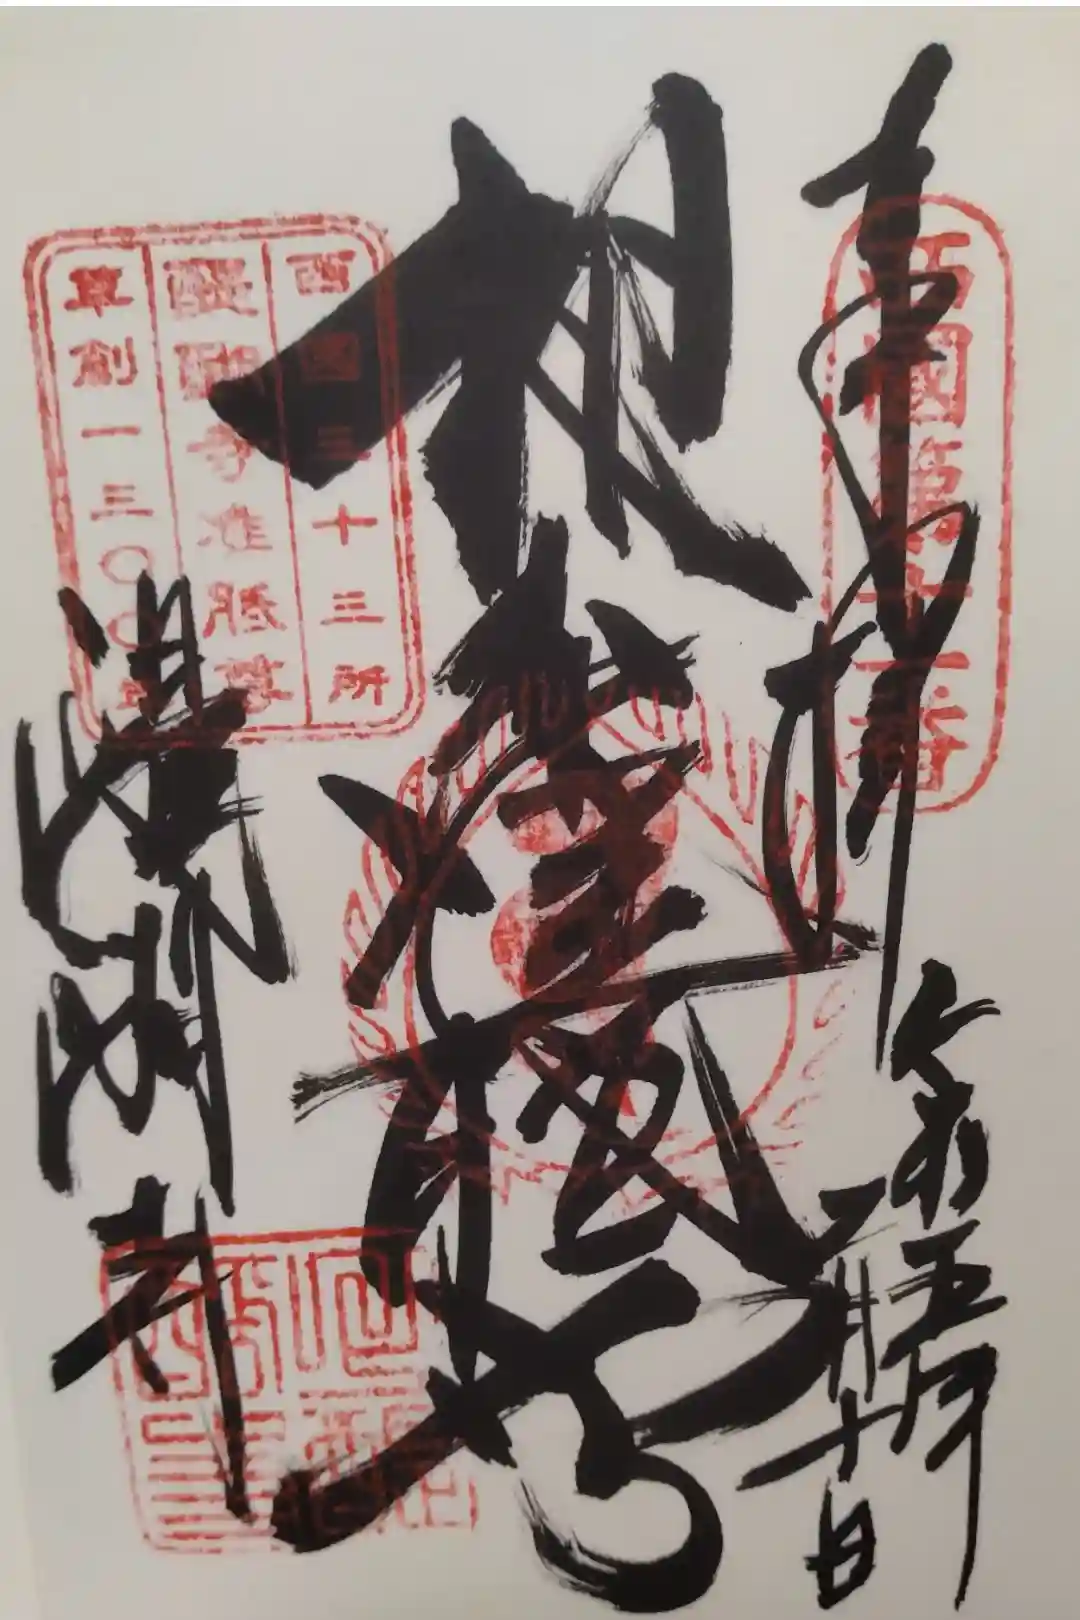 奉拝
令和五年
一月十日
西國第十一番
根本准胝尊
西國三十三所
醍醐寺准胝尊
草創一三〇〇年
醍醐寺